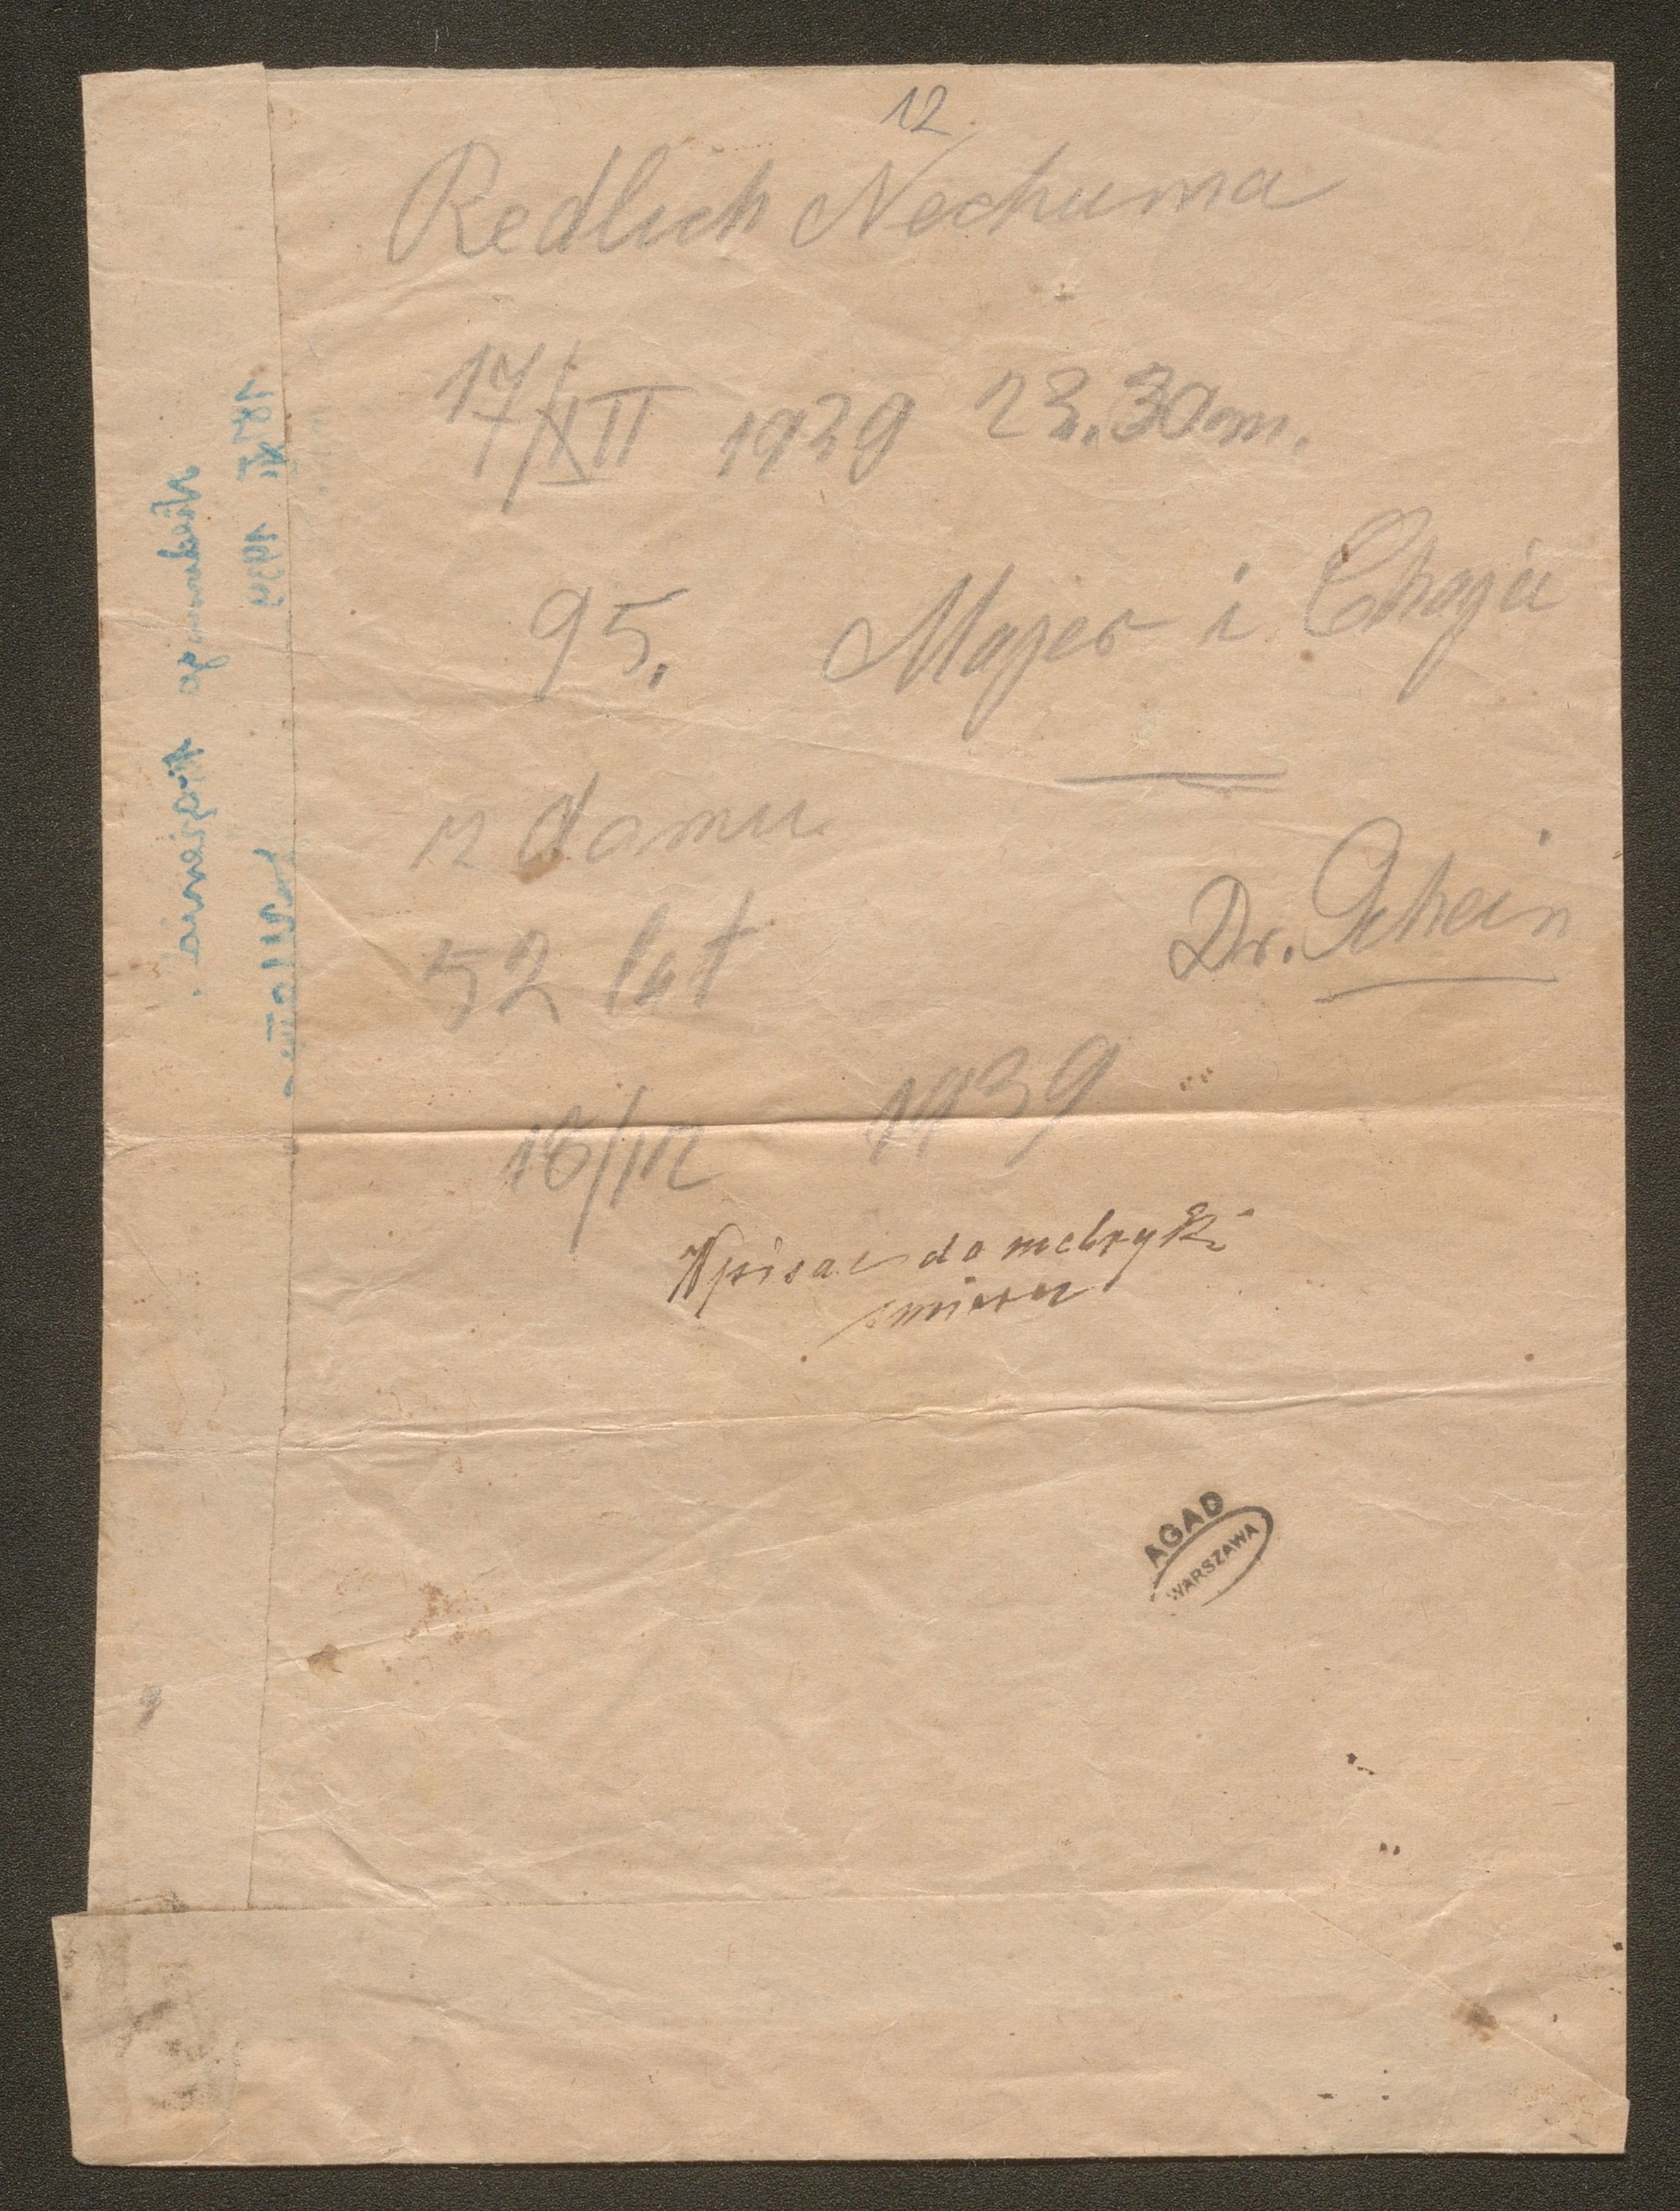 12
Redlich Nechuma
17/XII 1939 23.30 m.
95. Majer i Chaja
w domu
52 lat
Dr. Schein
18/12 1939
Wpisać do metryki
śmierci
AGAD
WARSZAWA
1939